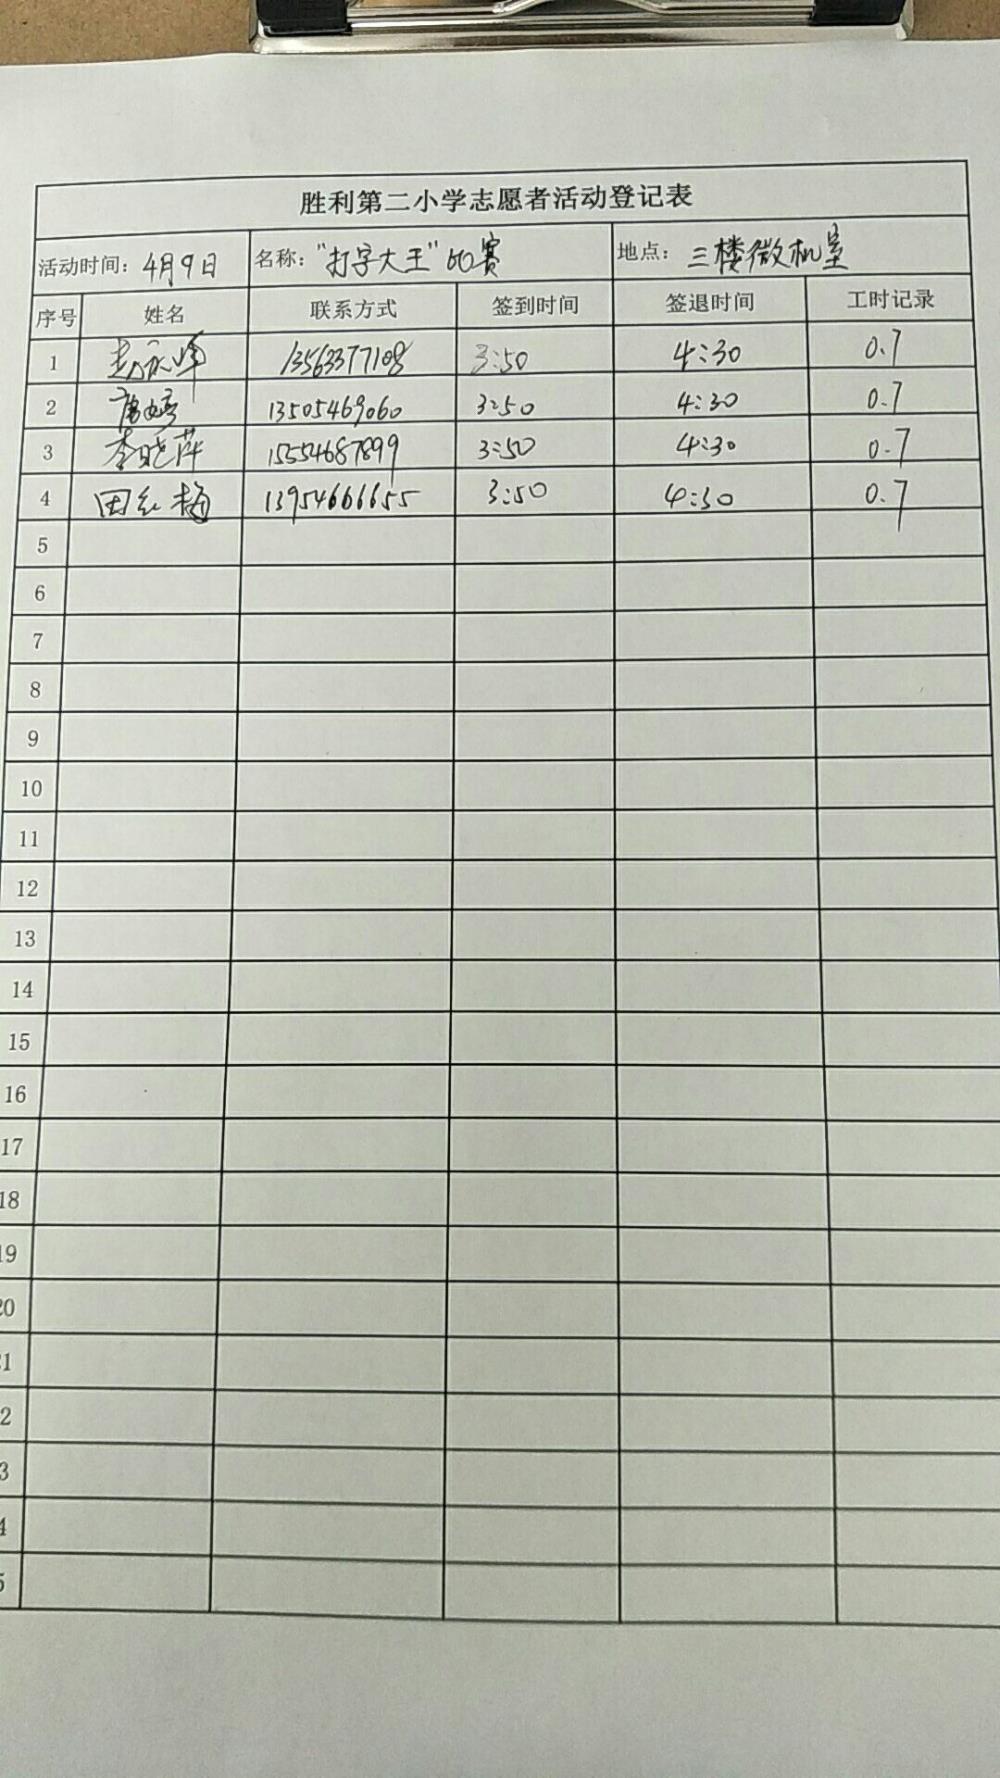 胜利第二小学志愿者活动登记表
活动时间：4月9日 名称："打字大王"比赛 地点：三楼微机室
序号 姓名 联系方式 签到时间 签退时间 工时记录
1 13563377108 3:50 4:30 0.7
2 唐婷 13505469060 3:50 4:30 0.7
3 李晓萍 15554687899 3:50 4:30 0.7
4 田红梅 13954666655 3:50 4:30 0.7
5
6
7
8
9
10
11
12
13
14
15
16
17
18
19
20
21
2
3
4
5